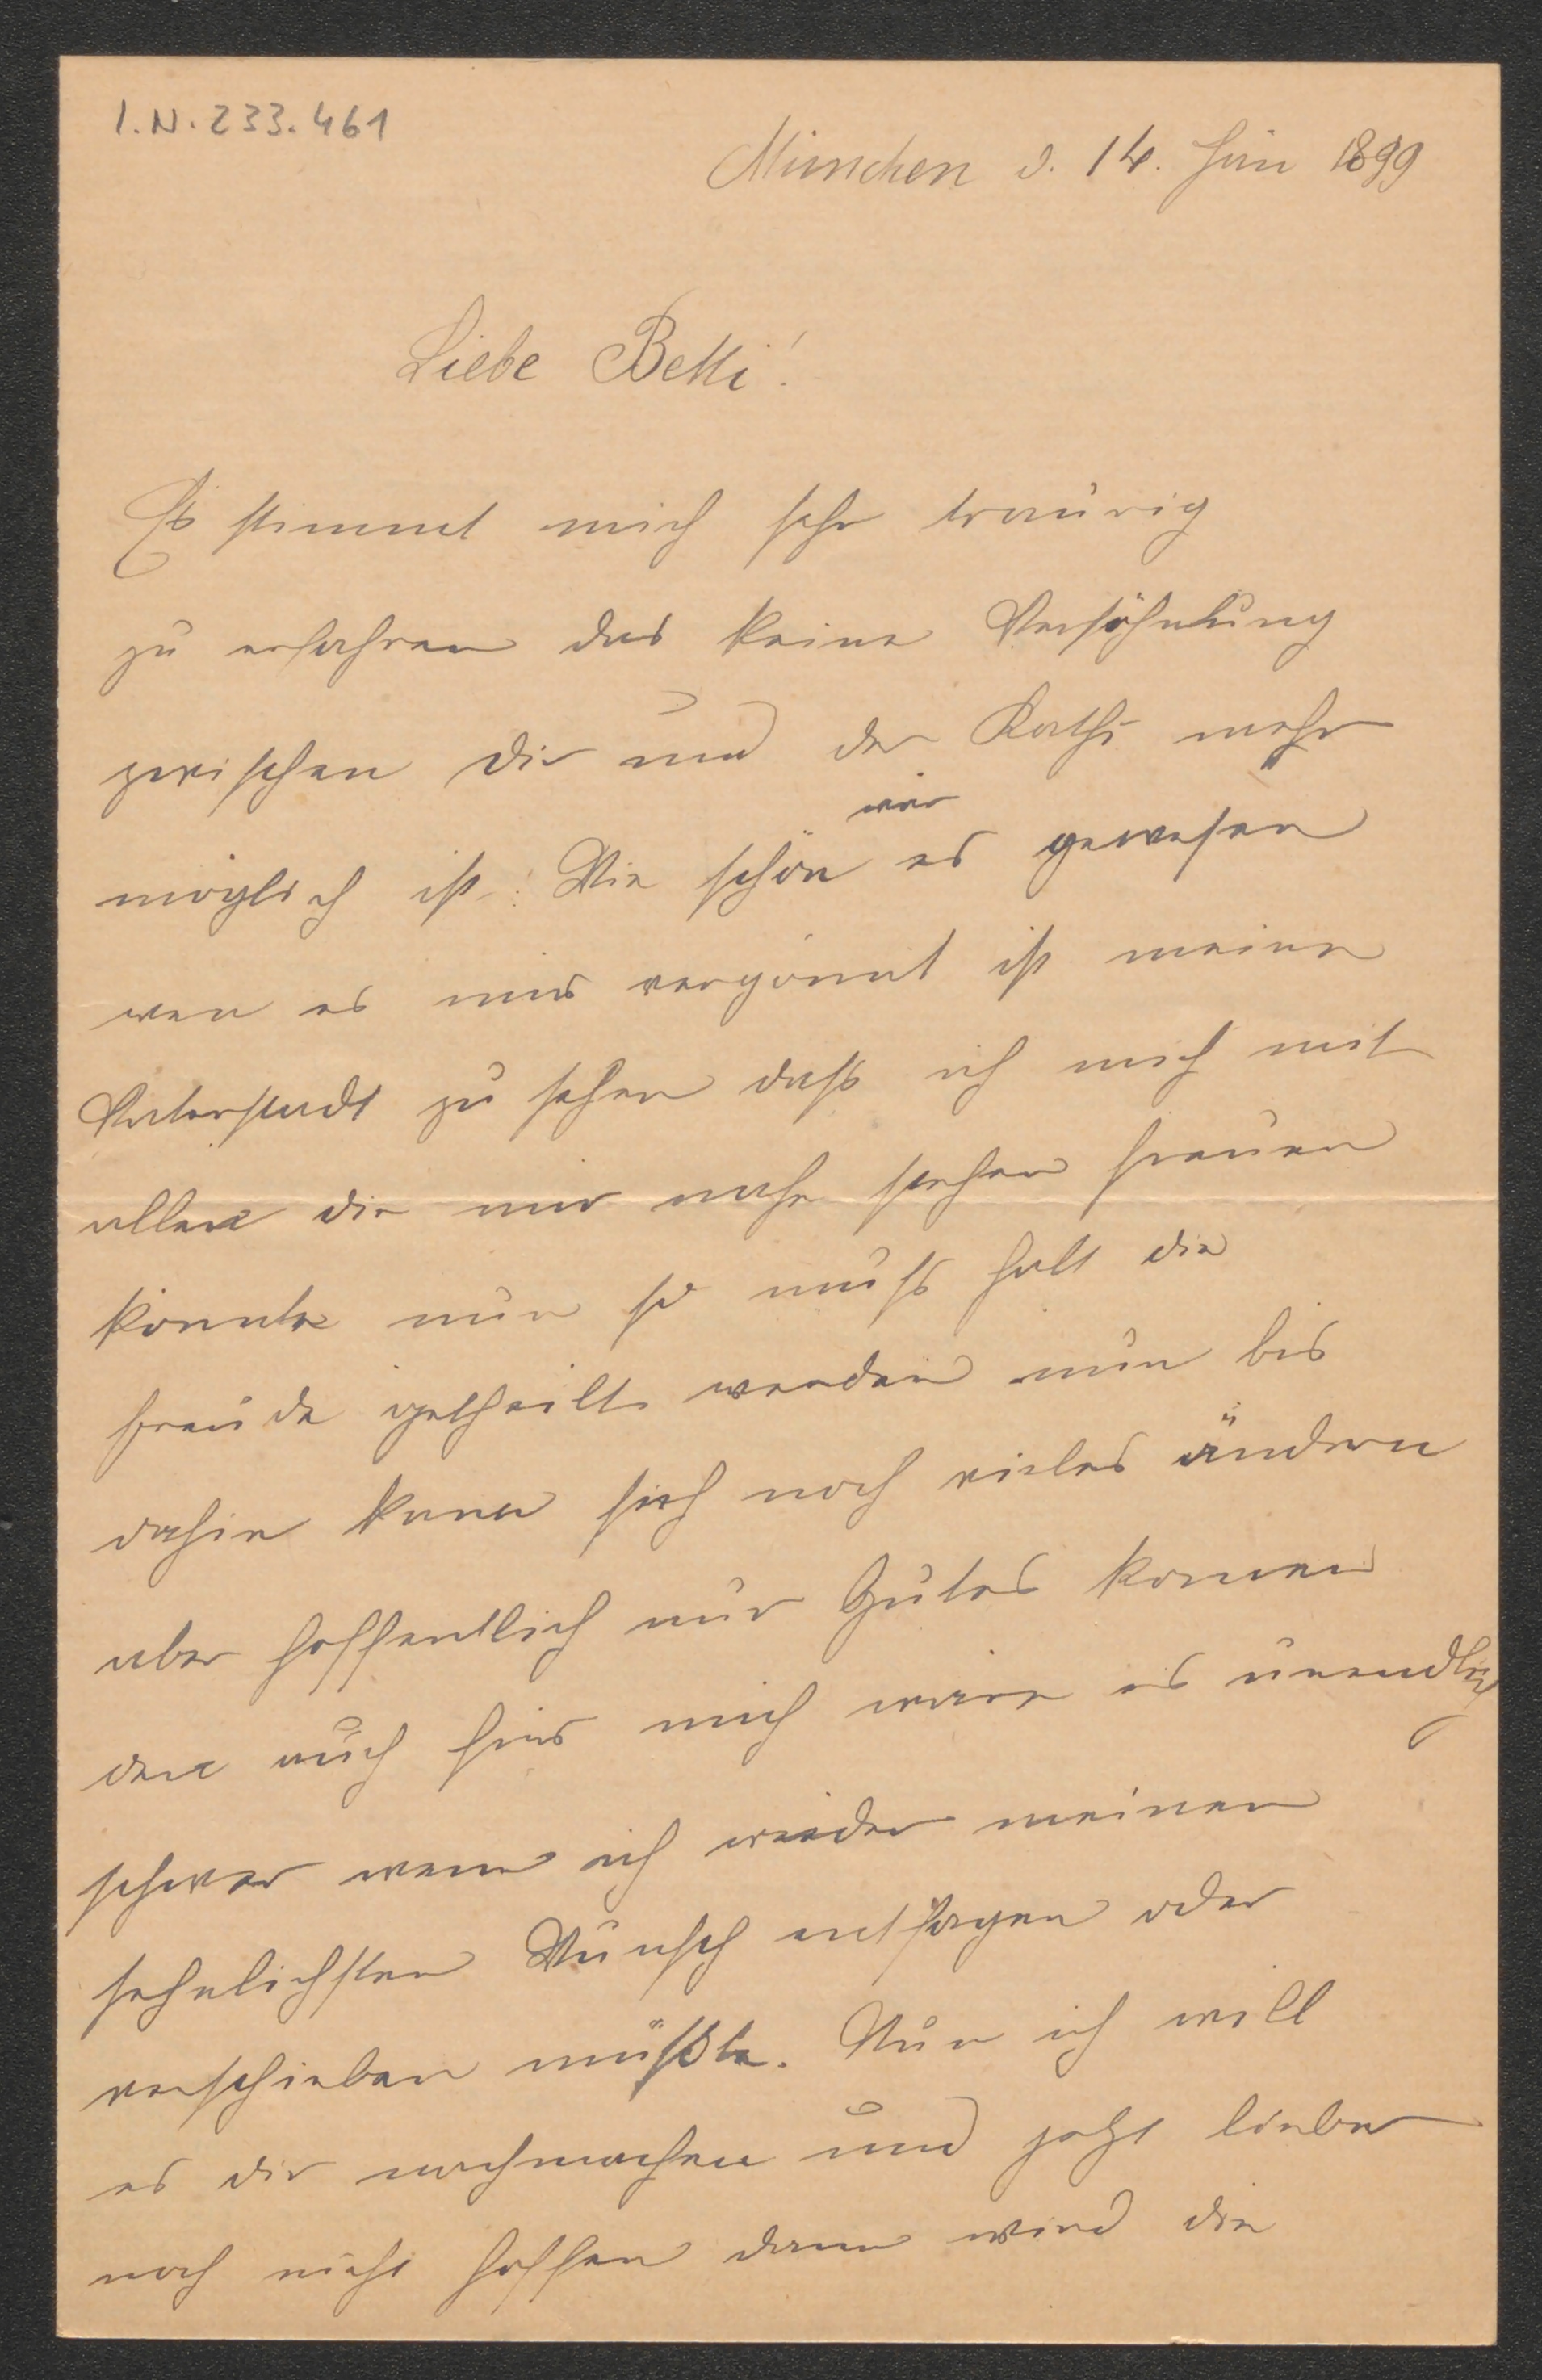 I.N. 233.461
München d. 14. Juni 1899
Liebe Betti!
Es stimmt mich sehr traurig
zu erfahren das keine Versöhnung
zwischen dir und der Kathi mehr
möglich ist. Wie schön
wär
es gewesen
wen es mir vergönnt ist meine
Vaterstadt zu sehen daß ich mich mit
allen die mir nahe stehen freuen
könnte nun so muß halt die
Freude getheilt werden nun bis
dahin kann sich noch vieles ändern
aber hoffentlich nur Gutes komen
den auch für mich wäre es unendlich
schwer wenn ich wieder meinen
sehnlichsten Wunsch entsagen oder
verschieben müßte. Nun ich will
es dir nachmachen und jetzt lieber
noch nicht hoffen dann wird die